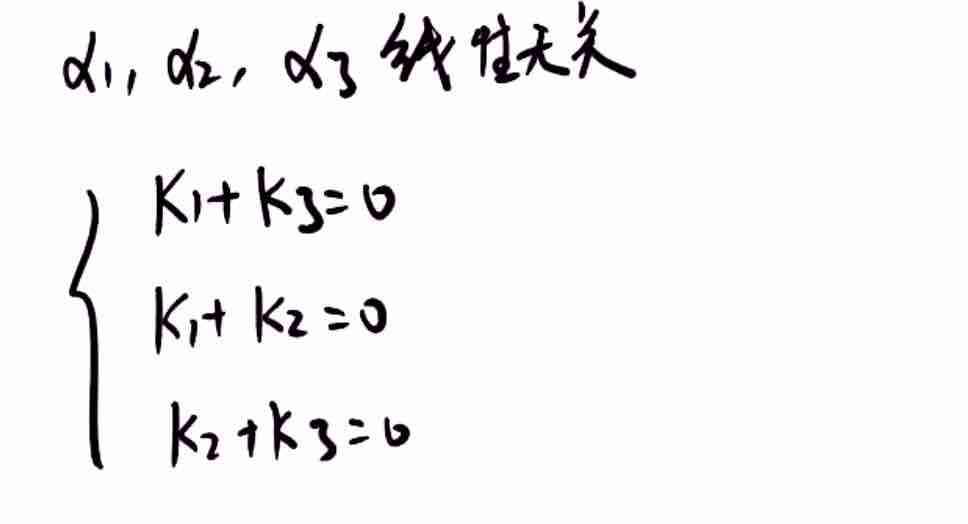 α1, α2, α3 线性无关
K1+K3=0
K1+K2=0
K2+K3=0